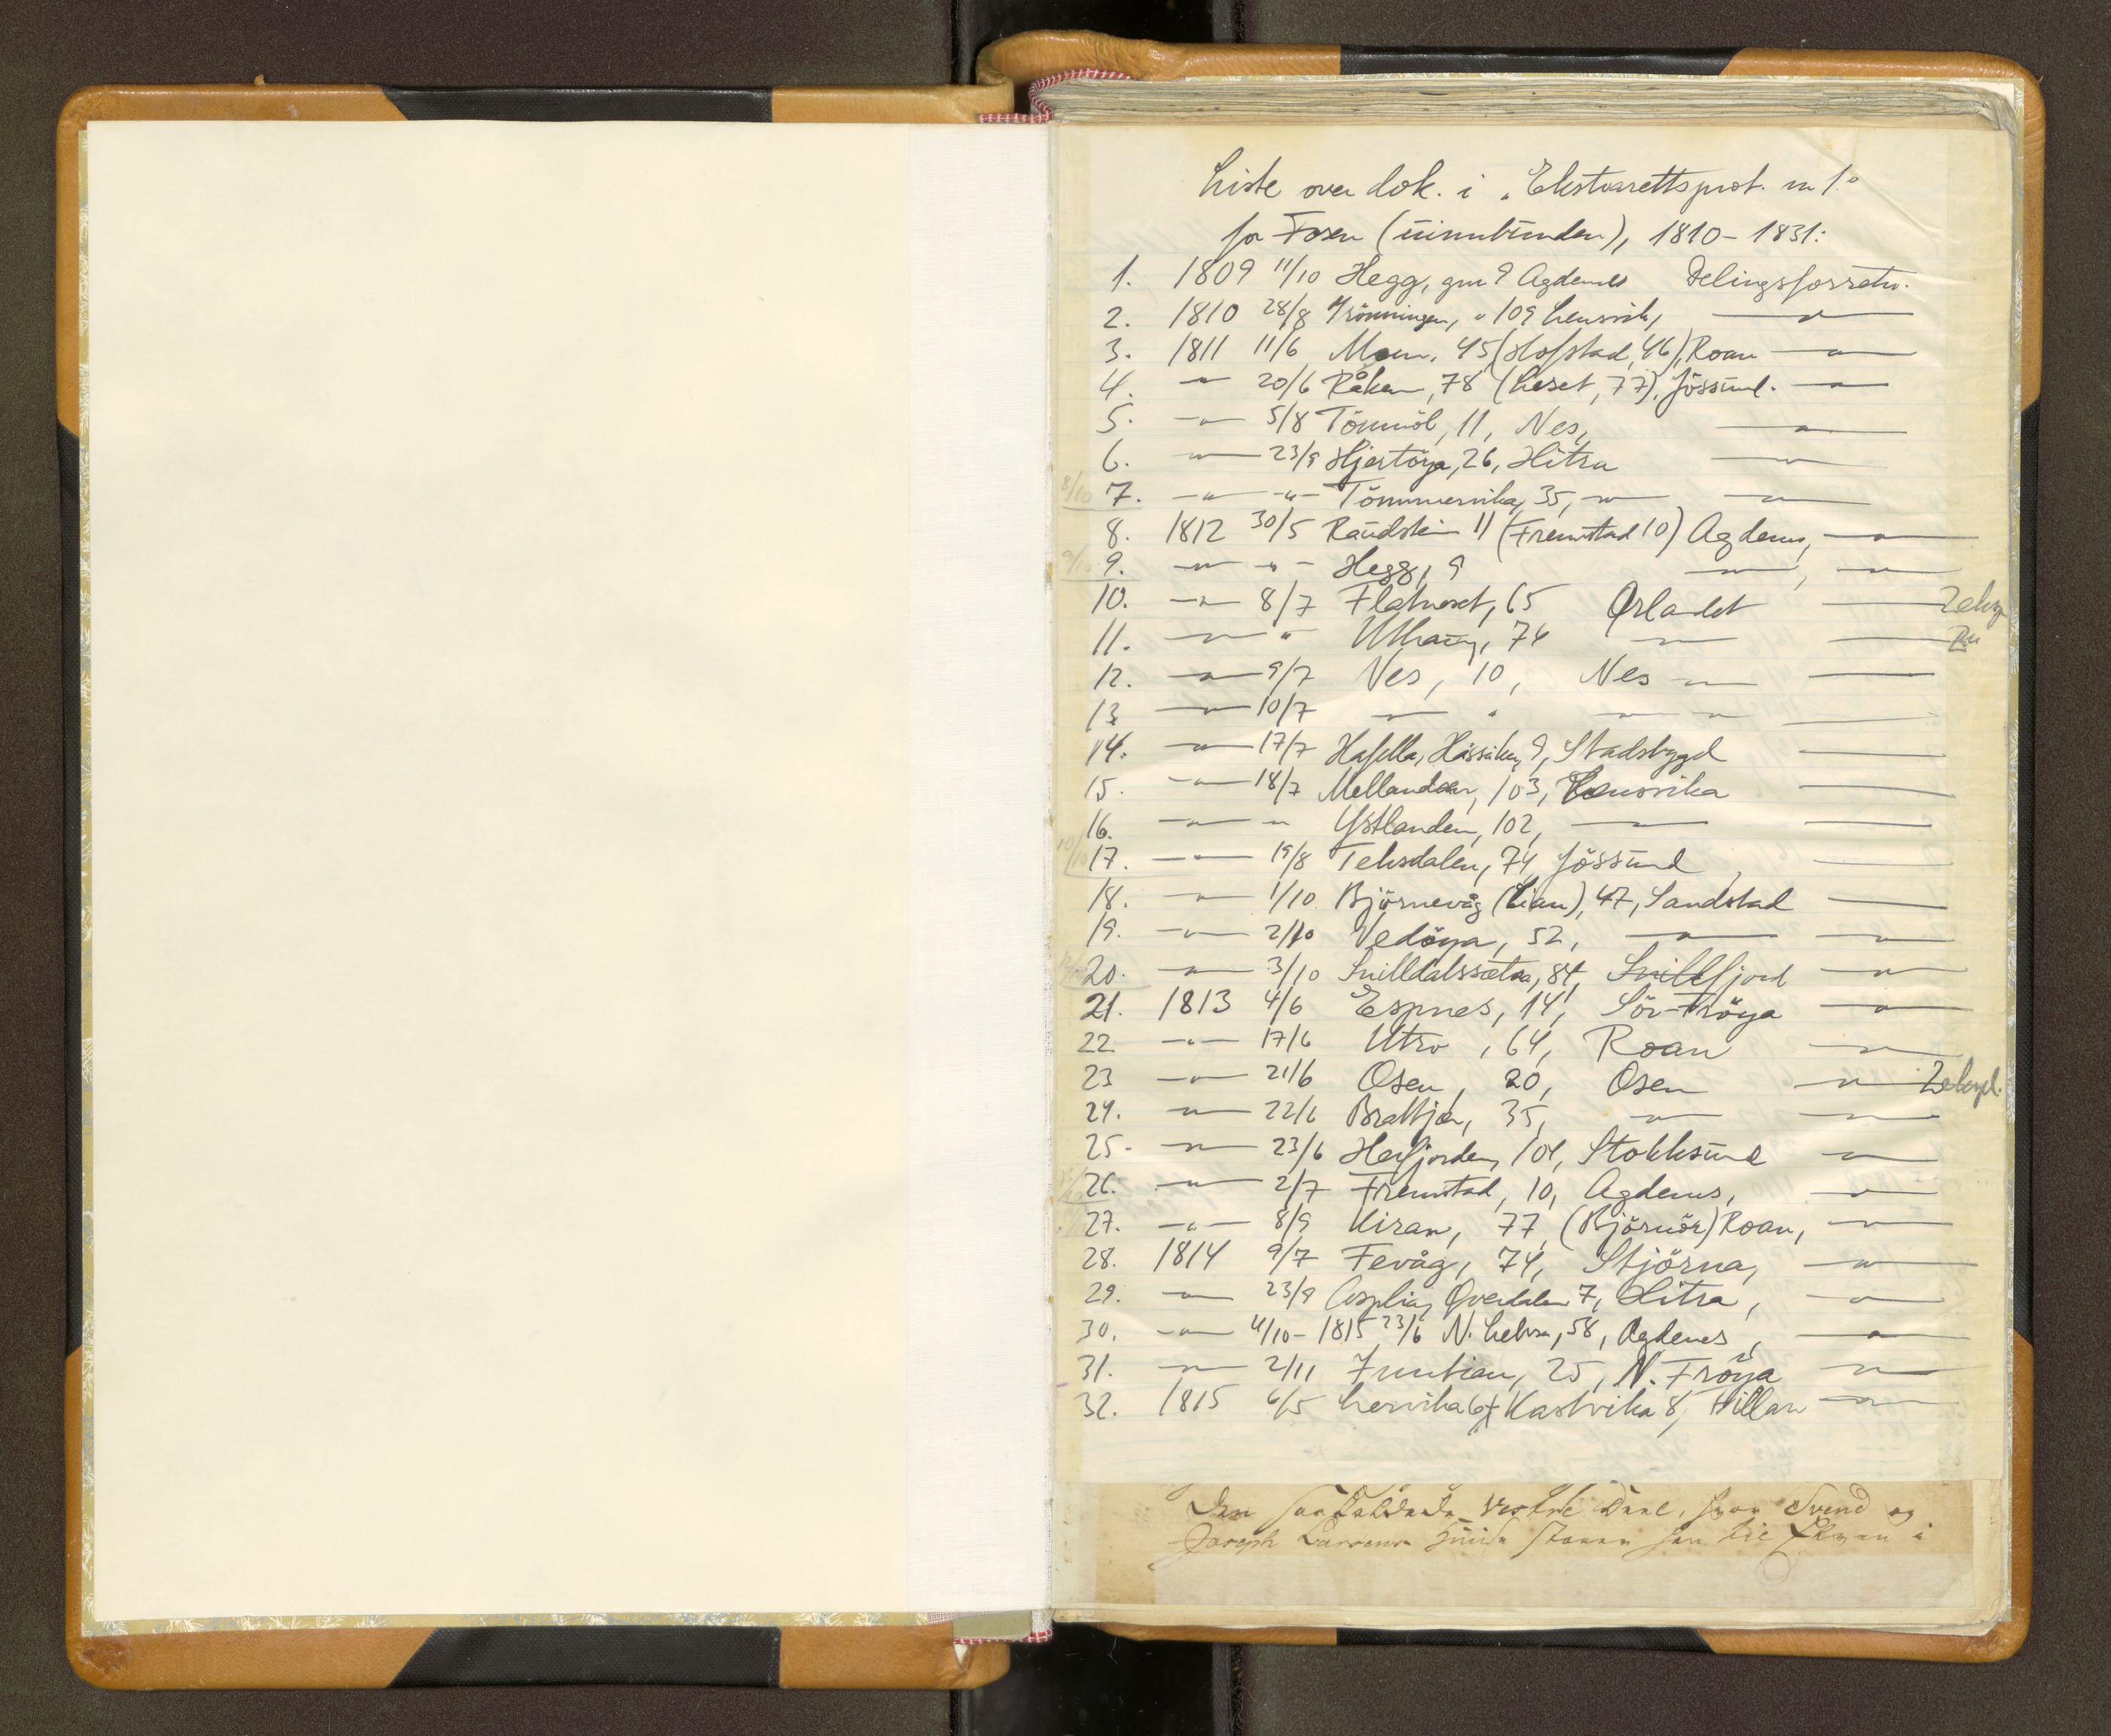 Liste over dok. i „Ekstrarettsprot. nr 1."
for Fosen (uinnbunden), 1810–1831:
1. 1809 11/10 Hegg, gnr 9 Agdenes Delingsforretn.
2. 1810 28/8 Grönningen, " 109 Lensvik, —"—
3. 1811 11/6 Moen, 45 (Hofstad, 46), Roan —"—
4. —"— 20/6 Råken, 78 (Leset, 77), Jössund. —"—
5. —"— 5/8 Tömmöl, 11, Nes, —"—
6. —"— 23/9 Hjertöya, 26, Hitra —"—
8/10 7. —"— -"- Tömmervika, 35, —"— —"—
8. 1812 30/5 Raudstein 11 (Fremstad 10) Agdenes, —"—
9. —"— -"- Hegg, 9 —"—, —"—
10. —"— 8/7 Flatneset, 65 Ørlandet ——
11. —"— " Uthaug, 74 —"— ——
12. —"— 9/7 Ves, 10, Nes —"— ——
13 —"— 10/7 —"— " —"— —"— ——
14. —"— 17/7 Hafella, Håssaker, 9, Stadsbygd ——
15. —"— 18/7 Mellandær, 103, Lensvika ——
16. —"— " Ystlanden, 102, —"— ——
10/10 17. —"— 19/8 Teksdalen, 74, Jössund ——
18. —"— 1/10 Björnevåg (Lian), 47, Sandstad ——
19. —"— 2/10 Vedöya, 52, —"— —"—
20. —"— 3/10 Snilldalssætra, 84, Snillfjord —"—
21. 1813 4/6 Espnes, 14, Sör-Fröya —"—
22 —"— 17/6 Utro, 64, Roan —"—
23 —"— 21/6 Osen, 20, Osen —"— 2 ekspl.
24. —"— 22/6 Brattjer, 35, —"— —"—
25. —"— 23/6 Herfjorden, 101, Stokksund —"—
26. —"— 2/7 Fremstad, 10, Agdenes, —"—
27. —"— 8/9 Kiran, 77, (Björnör) Roan, —"—
28. 1814 9/7 Fevåg, 74, Stjörna, —"—
29. —"— 23/8 Asplia, Qverdalen 7, Hitra, —"—
30. —"— 4/10 – 1815 23/6 N. Leksa, 58, Agdenes, —"—
31. —"— 2/11 25, N. Fröya —"—
32. 1815 6/5 Lervika 6, Kastvika 8, Fillan —"—
Den Svend og
Joseph Larsens